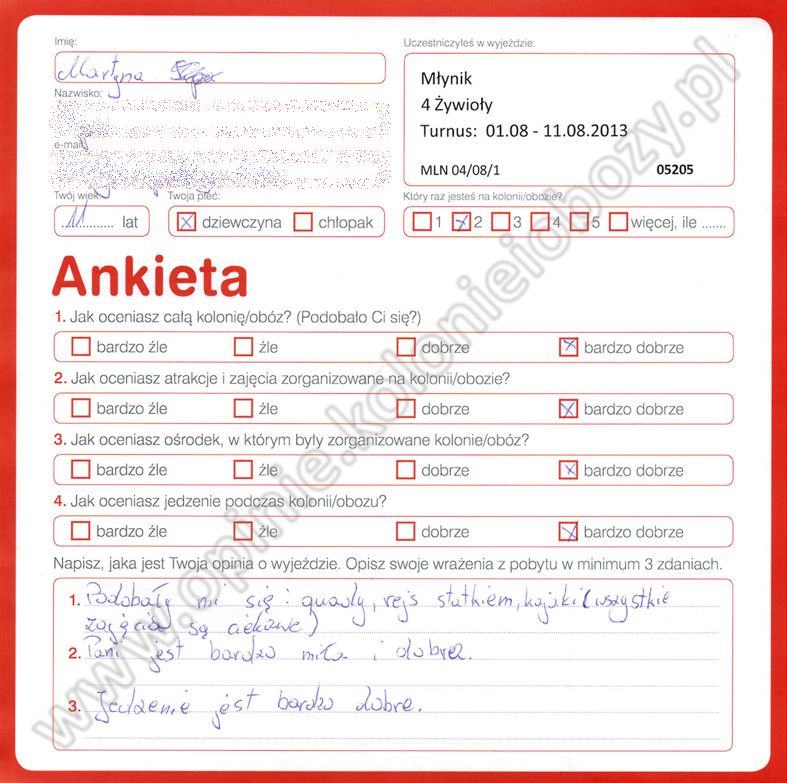 Imię:
Martyna
Uczestniczyłeś w wyjeździe:
Młynik
4 Żywioły
Turnus: 01.08 - 11.08.2013
MLN 04/08/1 05205
Nazwisko:
e-mail
Twój wiek:
11 lat
Twoja płeć:
dziewczyna chłopak
Który raz jesteś na kolonii/obozie?
1 2 3 4 5 więcej, ile .......
Ankieta
1. Jak oceniasz całą kolonię/obóz? (Podobało Ci się?)
bardzo źle źle dobrze bardzo dobrze
2. Jak oceniasz atrakcje i zajęcia zorganizowane na kolonii/obozie?
bardzo źle źle dobrze bardzo dobrze
3. Jak oceniasz ośrodek, w którym były zorganizowane kolonie/obóz?
bardzo źle źle dobrze bardzo dobrze
4. Jak oceniasz jedzenie podczas kolonii/obozu?
bardzo źle źle dobrze bardzo dobrze
Napisz, jaka jest Twoja opinia o wyjeździe. Opisz swoje wrażenia z pobytu w minimum 3 zdaniach.
1. Podobały mi się: quady, rejs statkiem, kajaki (wszystkie
zajęcia są ciekawe)
2. Pani jest bardzo miła i dobra.
3. Jedzenie jest bardzo dobre.
www.opinie.kolonieiobozy.pl